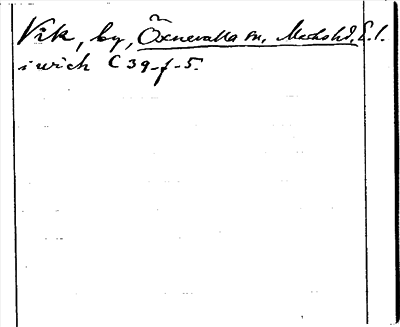 Vik, by, Öxnevalla sn, Marks hd, E.l.
i wich C 39-f-5.